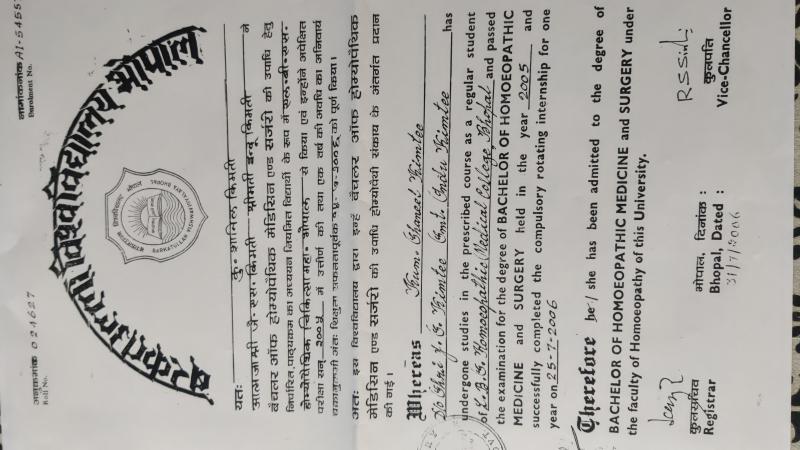 अनुक्रमांक 024627
Roll No.
नामांकनांक AI-5455
Enrolment No.
बरकतउल्ला विश्वविद्यालय भोपाल
BARKATULLAH VISHWAVIDYALAYA BHOPAL
यतः कु. शानित किमती ने
आत्मजा श्री जे. एस. किमती श्रीमती इन्दू किमती
बैचलर ऑफ होम्योपैथिक मेडिसिन एण्ड सर्जरी की उपाधि हेतु
निर्धारित पाठ्यक्रम का अध्ययन नियमित विद्यार्थी के रूप में एल. बी. एस.
होम्योपैथिक चिकित्सा महा. भोपाल से किया एवं इन्होंने अपेक्षित
परीक्षा सन् २००५ में उत्तीर्ण की तथा एक वर्ष की अवधि का अनिवार्य
को पूर्ण किया।
अतः इस विश्वविद्यालय द्वारा इन्हें बैचलर ऑफ होम्योपैथिक
मेडिसिन एण्ड सर्जरी की उपाधि होम्योपैथी संकाय के अंतर्गत प्रदान
की गई।
Whereas Kum. Shaneet Kimtee
D/o Shri J. S. Kimtee Smt. Indu Kimtee has
undergone studies in the prescribed course as a regular student
of L.B.S. Homoeopathic Medical College, Bhopal and passed
the examination for the degree of BACHELOR OF HOMOEOPATHIC
MEDICINE and SURGERY held in the year 2005 and
successfully completed the compulsory rotating internship for one
year on 25-7-2006
Therefore he / she has been admitted to the degree of
BACHELOR OF HOMOEOPATHIC MEDICINE and SURGERY under
the faculty of Homoeopathy of this University.
कुलसचिव
Registrar
भोपाल, दिनांक :
Bhopal, Dated :
31/7/2006
कुलपति
Vice-Chancellor